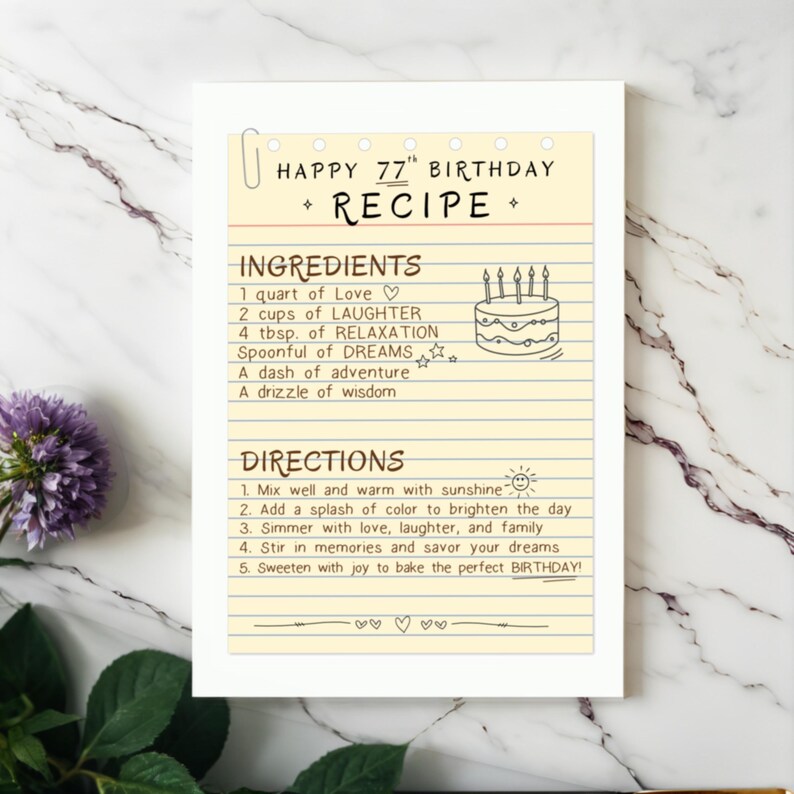 HAPPY 77th BIRTHDAY
RECIPE
INGREDIENTS
1 quart of Love
2 cups of LAUGHTER
4 tbsp. of RELAXATION
Spoonful of DREAMS
A dash of adventure
A drizzle of wisdom
DIRECTIONS
1. Mix well and warm with sunshine
2. Add a splash of color to brighten the day
3. Simmer with love, laughter, and family
4. Stir in memories and savor your dreams
5. Sweeten with joy to bake the perfect BIRTHDAY!